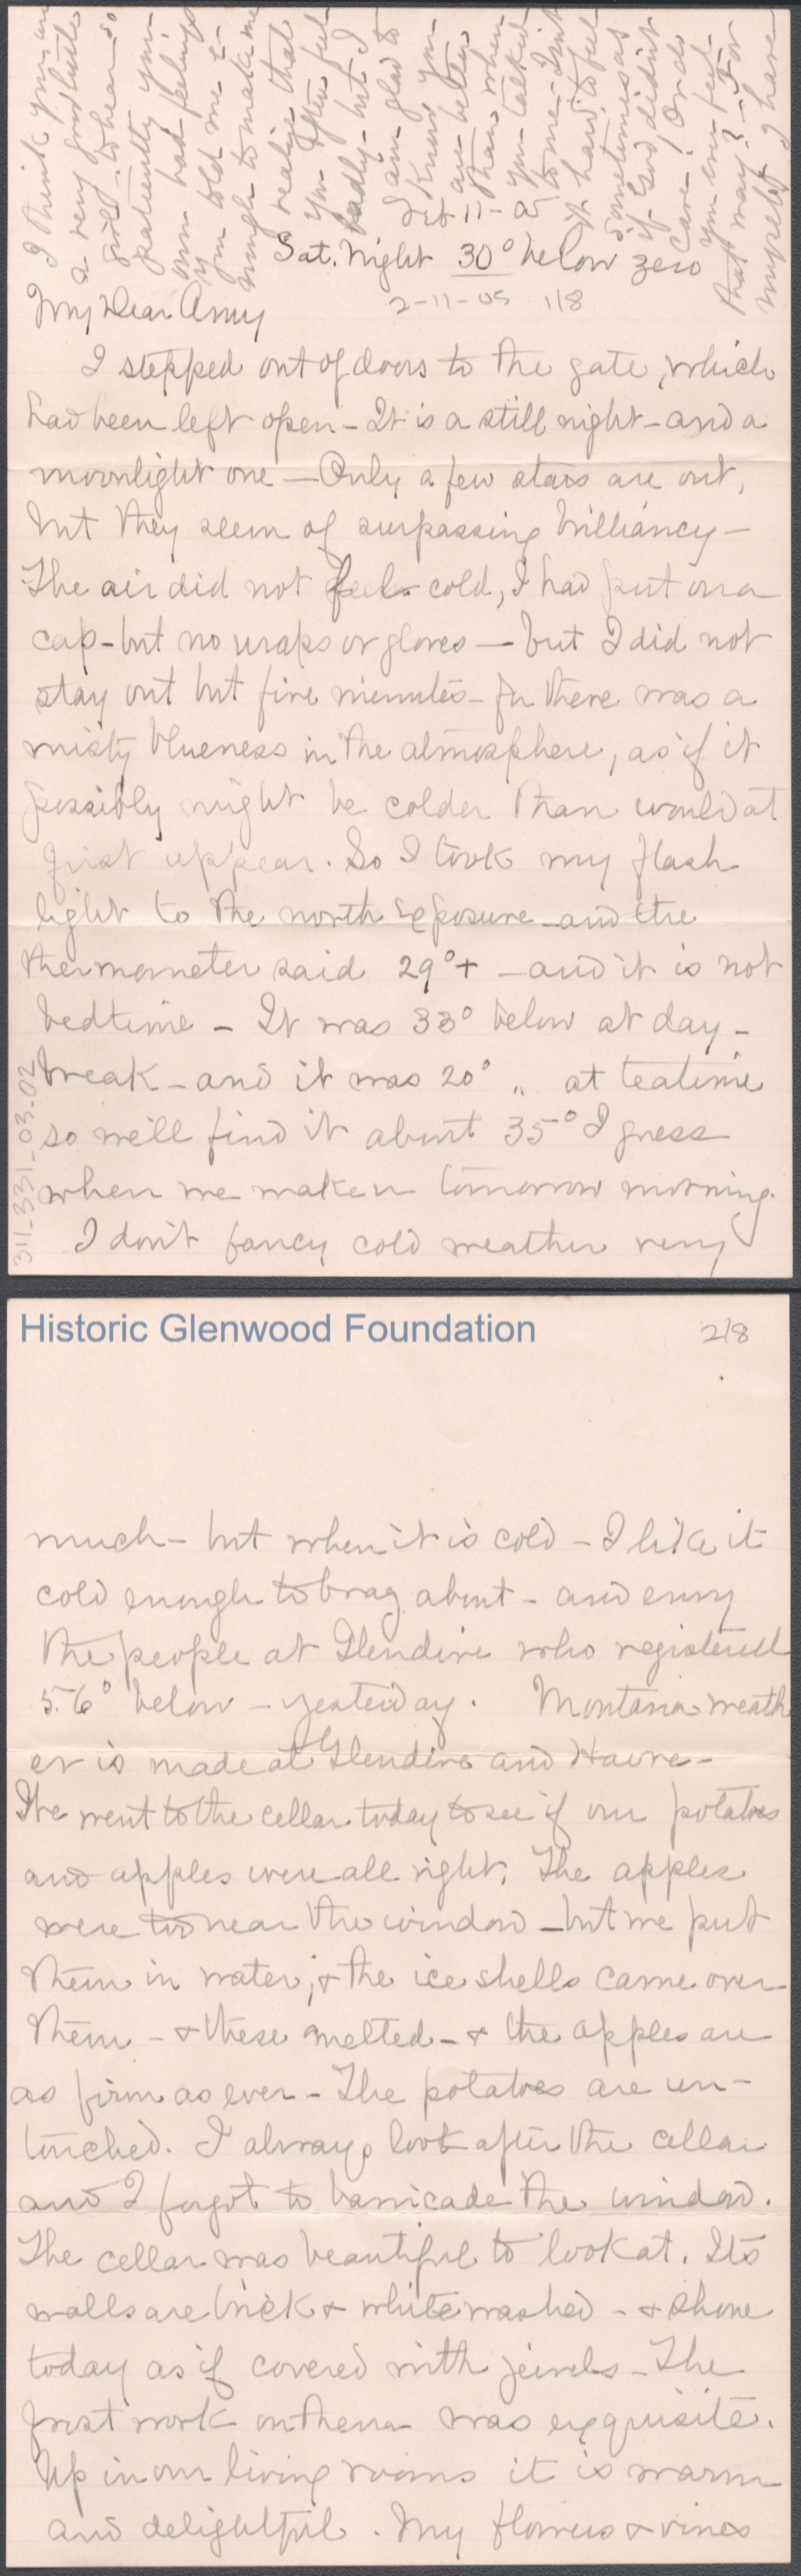 I think you are
a very good little
girl - to hear so
patiently your
own bad feelings
you told me e-
nough to make me
realize that
you often feel
badly - but I
I am glad to
know you
are better
than when
you talked
to me - I think
it hard to feel
sometimes as
if God didn't
care! Or do
you ever feel
that way? - For
myself I have
Feb-11-05
Sat. Night 30° below zero
2-11-05 1/8
My Dear Amy
I stepped out of doors to the gate, which
had been left open - It is a still night - and a
moonlight one - Only a few stars are out,
but they seem of surpassing brilliancy -
The air did not feel cold, I had put on a
cap - but no wraps or gloves - but I did not
stay out but five minutes - for there was a
misty blueness in the atmosphere, as if it
possibly might be colder than would at
first appear. So I took my flash
light to the north exposure - and the
thermometer said 29°+ - and it is not
bedtime - It was 33° below at day-
break - and it was 20° " at teatime
so we'll find it about 35° I guess
when we waken tomorrow morning.
I don't fancy cold weather very
311-331-03-02
Historic Glenwood Foundation
2/8
much - but when it is cold - I like it
cold enough to brag about - and envy
the people at Glendive who registered
56° below - yesterday. Montana weath
er is made at Glendive and Havre -
We went to the cellar today to see if our potatoes
and apples were all right. The apples
were too near the window - but we put
them in water, & the ice shells came over
them - & these melted - & the apples are
as firm as ever - The potatoes are un-
touched. I always look after the cellar
and I forgot to barricade the window.
The cellar was beautiful to look at. Its
walls are brick & whitewashed - & shone
today as if covered with jewels - The
frost work on them was exquisite.
Up in our living rooms it is warm
and delightful. My flowers & vines